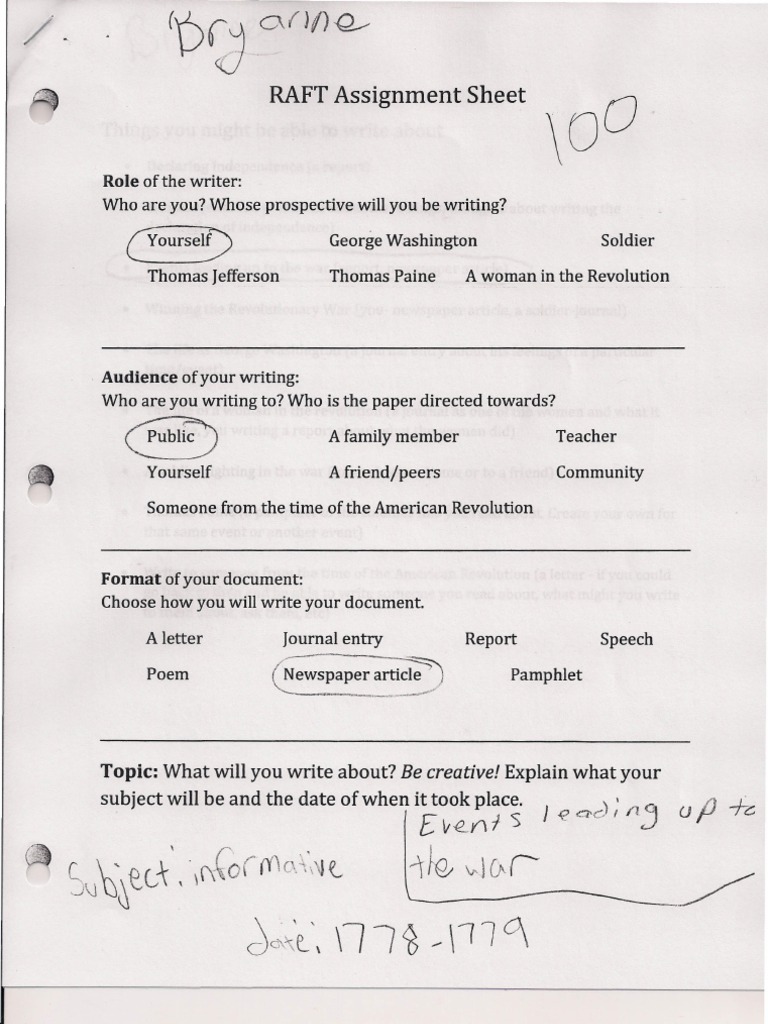 Bryanne
RAFT Assignment Sheet
100
Things you might be able to write about
Role of the writer:
Who are you? Whose prospective will you be writing?
Yourself George Washington Soldier
Thomas Jefferson Thomas Paine A woman in the Revolution
Audience of your writing:
Who are you writing to? Who is the paper directed towards?
Public A family member Teacher
Yourself A friend/peers Community
Someone from the time of the American Revolution
Format of your document:
Choose how you will write your document.
A letter Journal entry Report Speech
Poem Newspaper article Pamphlet
Topic: What will you write about? Be creative! Explain what your
subject will be and the date of when it took place.
Events leading up to
the war
Subject: informative
date: 1778-1779